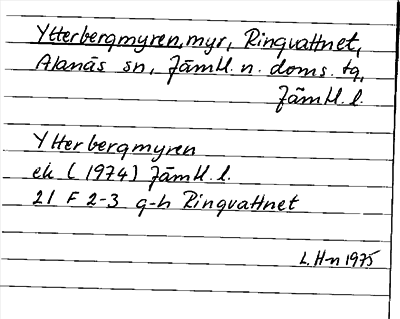 Ytterbergmyren, myr, Ringvattnet,
Alanäs sn, Jämtl. n. doms. tg,
Jämtl. l.
Ytterbergmyren
ek (1974) Jämtl. l.
21 F 2-3 g-h Ringvattnet
L. H-n 1975